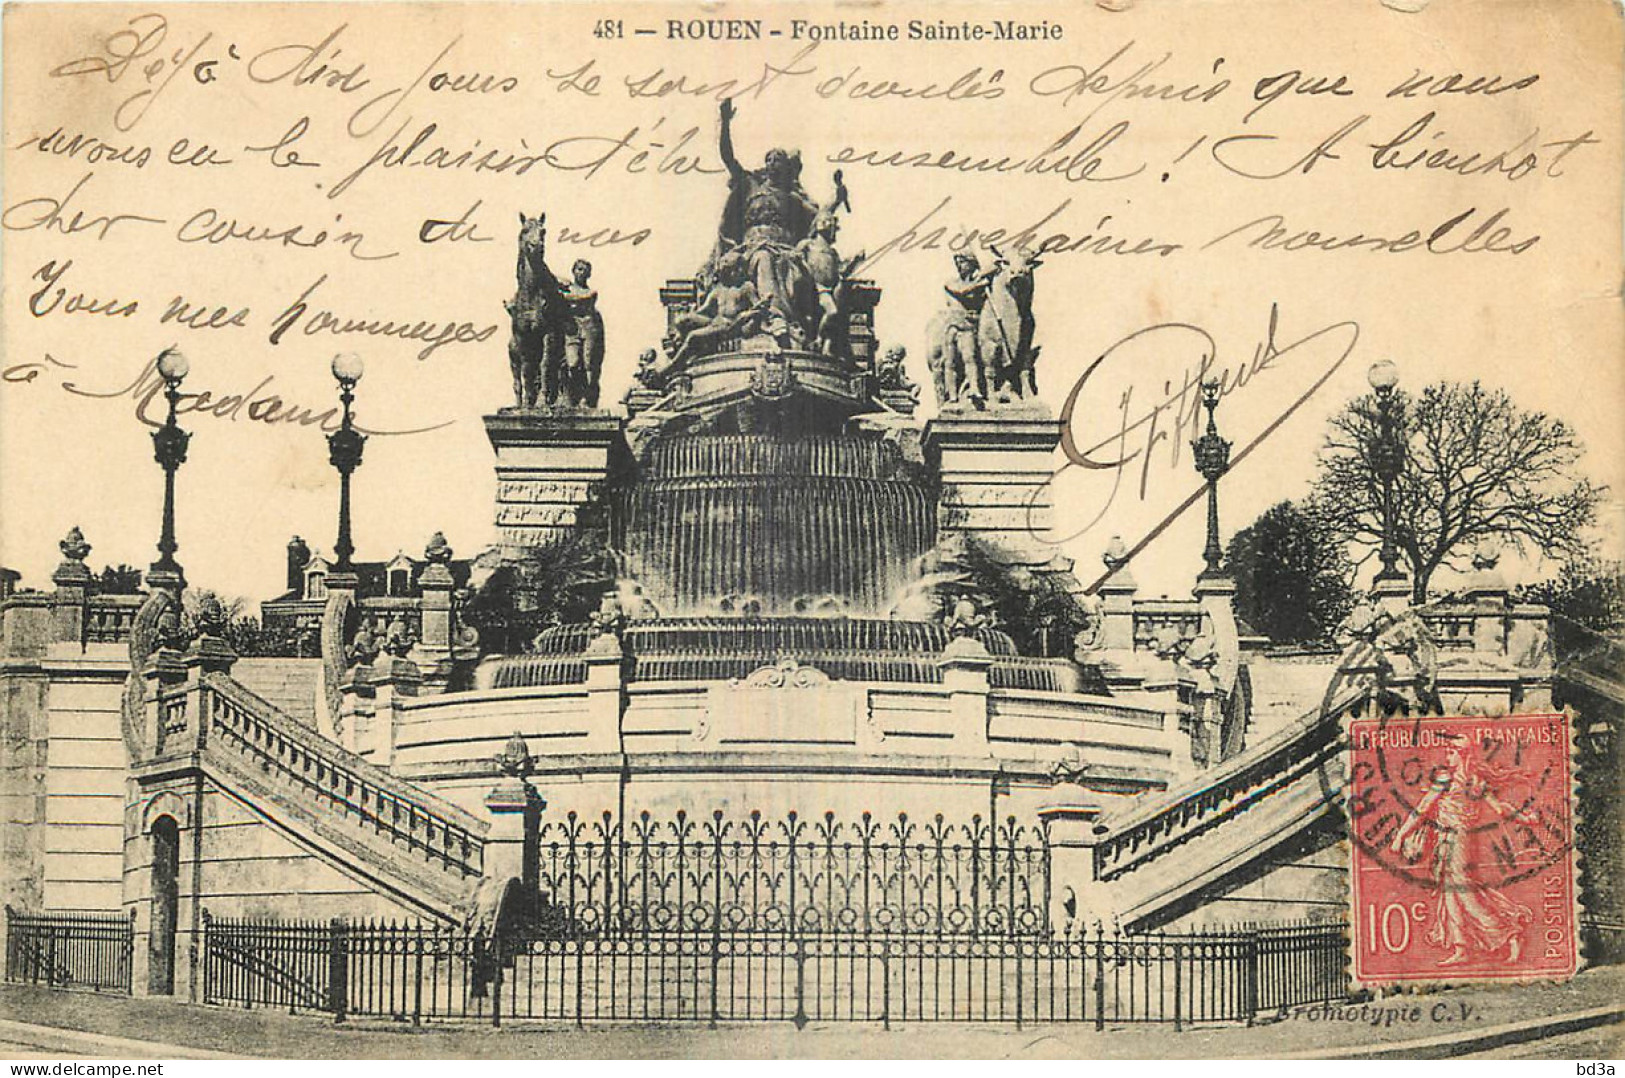 481 — ROUEN - Fontaine Sainte-Marie
Déjà dix jours se sont écoulés depuis que nous
avons eu le plaisir d'être ensemble ! A bientôt
cher cousin de nos prochaines nouvelles
Tous mes hommages
à Madame
REPUBLIQUE FRANÇAISE
10c
POSTES
ROUEN - BOURSE
Bromotypie C.V.
delcampe.net
bd3a